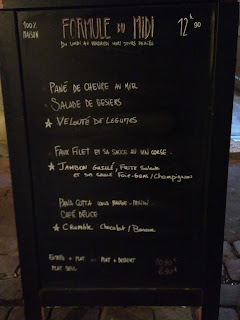 100%
MAISON
FORMULE DU MIDI
12€90
DU LUNDI AU VENDREDI HORS JOURS FERIÉS
PANÉ DE CHEVRE AU MIEL
SALADE DE GESIERS
★ VELOUTÉ DE LEGUMES
FAUX FILET ET SA SAUCE AU VIN CORSE
★ JAMBON GRILLÉ, FRITE SALADE
ET SA SAUCE FOIE-GRAS/CHAMPIGNON
PANA COTTA MAISON
CAFÉ DÉLICE
★ CRUMBLE CHOCOLAT/BANANE
ENTRÉE + PLAT PLAT + DESSERT
PLAT SEUL